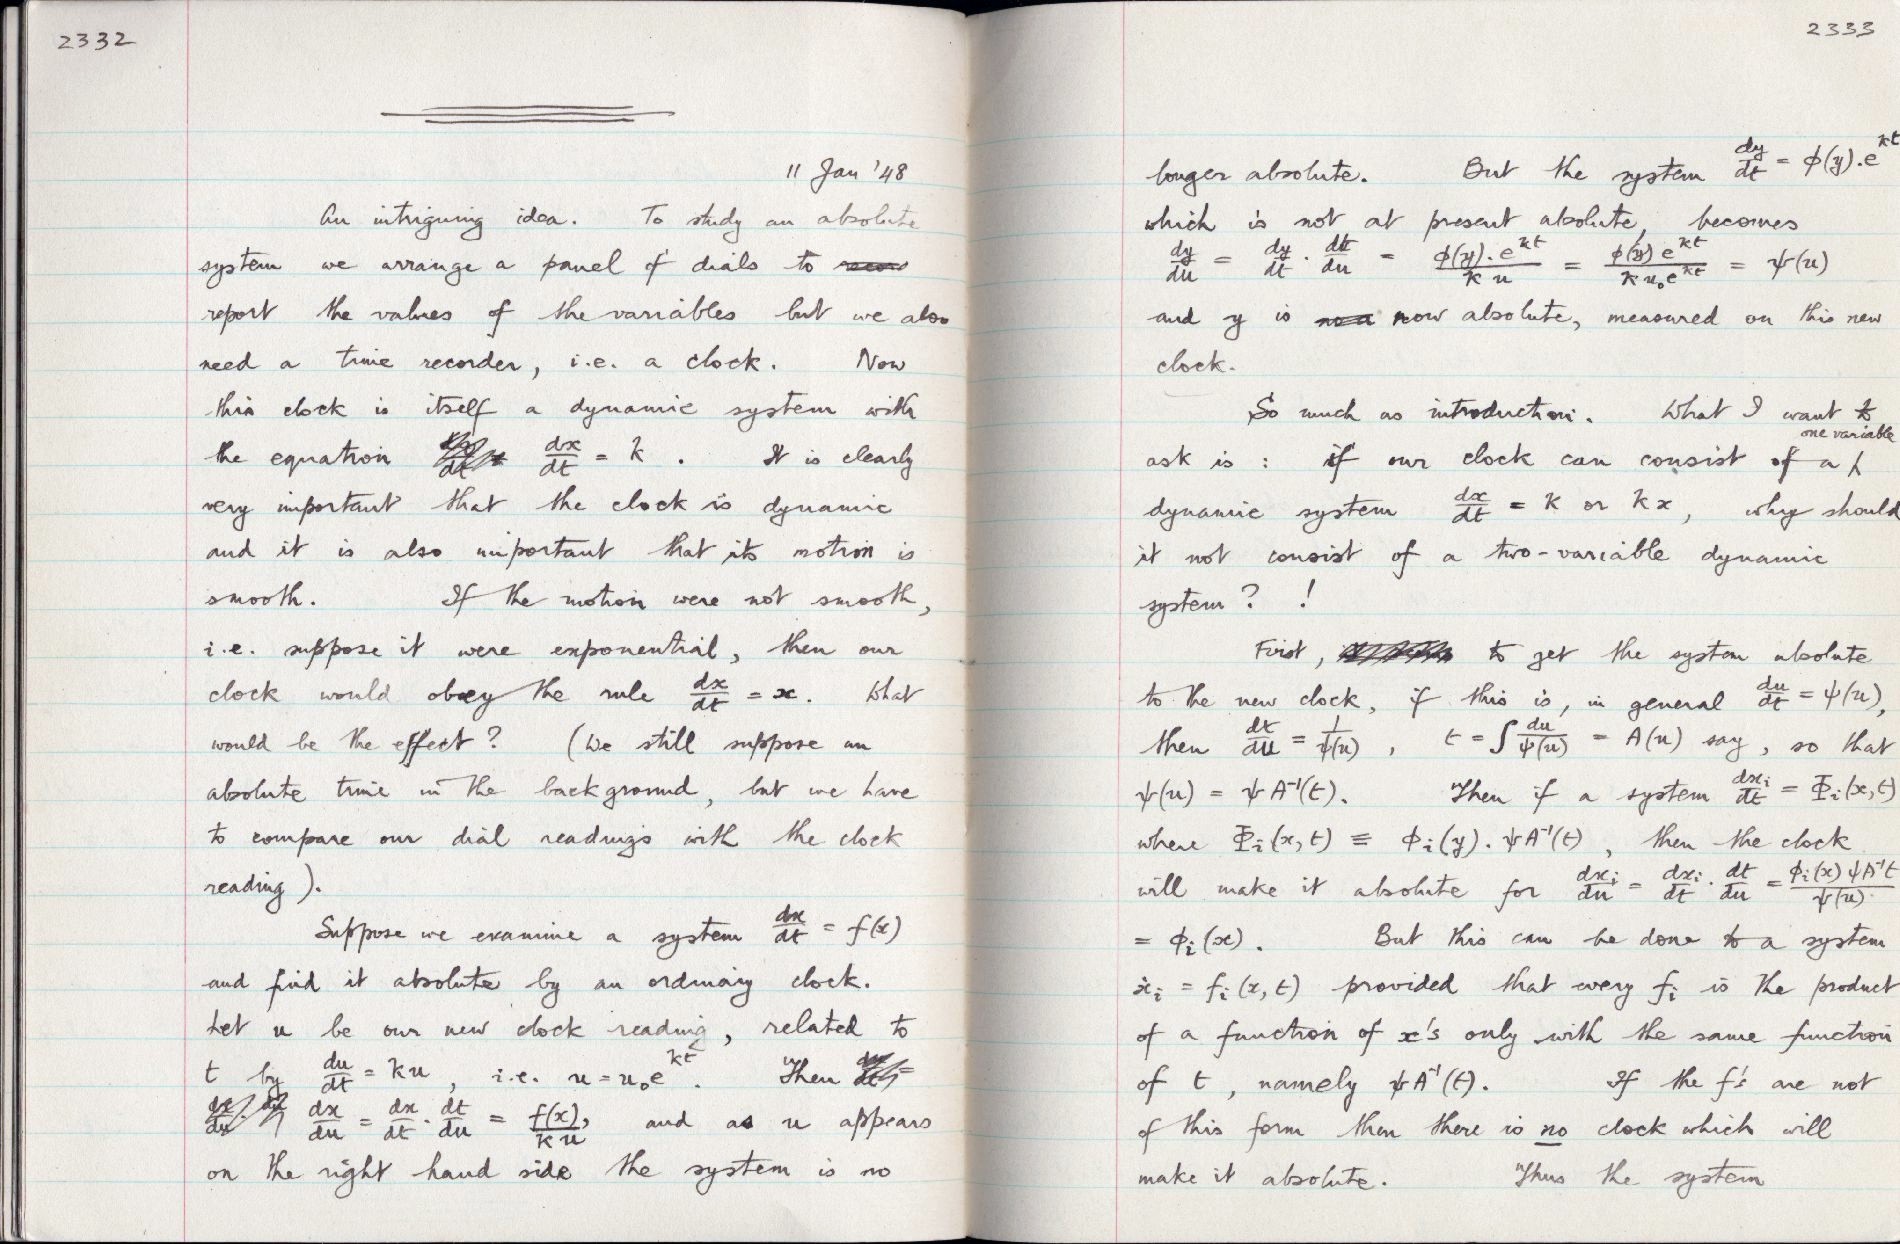 2332
11 Jan '48
An intriguing idea. To study an absolute
system we arrange a panel of dials to
report the values of the variables but we also
need a time recorder, i.e. a clock. Now
this clock is itself a dynamic system with
the equation dx/dt = k . It is clearly
very important that the clock is dynamic
and it is also important that its motion is
smooth. If the motion were not smooth,
i.e. suppose it were exponential, then our
clock would obey the rule dx/dt = x. What
would be the effect? (We still suppose an
absolute time in the background, but we have
to compare our dial readings with the clock
reading).
Suppose we examine a system dx/dt = f(x)
and find it absolute by an ordinary clock.
Let u be our new clock reading, related to
t by du/dt = ku , i.e. u = u₀e^kt. Then
dx/du = dx/dt · dt/du = f(x)/ku, and as u appears
on the right hand side the system is no
2333
longer absolute. But the system dy/dt = ϕ(y).e^kt
which is not at present absolute, becomes
dy/du = dy/dt · dt/du = ϕ(y).e^kt/ku = ϕ(y)e^kt/ku₀e^kt = ψ(u)
and y is now absolute, measured on this new
clock.
So much as introduction. What I want to
ask is : if our clock can consist of a one variable
dynamic system dx/dt = k or kx, why should
it not consist of a two-variable dynamic
system? !
First, to get the system absolute
to the new clock, if this is, in general du/dt = ψ(u),
then dt/du = 1/ψ(u) , t = ∫du/ψ(u) = A(u) say, so that
ψ(u) = ψA⁻¹(t). Then if a system dxᵢ/dt = Φᵢ(x,t)
where Φᵢ(x,t) ≡ ϕᵢ(y). ψA⁻¹(t) , then the clock
will make it absolute for dxᵢ/du = dxᵢ/dt · dt/du = ϕᵢ(x)ψA⁻¹t/ψ(u)
= ϕᵢ(x). But this can be done to a system
ẋᵢ = fᵢ(x,t) provided that every fᵢ is the product
of a function of x's only with the same function
of t, namely ψA⁻¹(t). If the f's are not
of this form then there is no clock which will
make it absolute. Thus the system